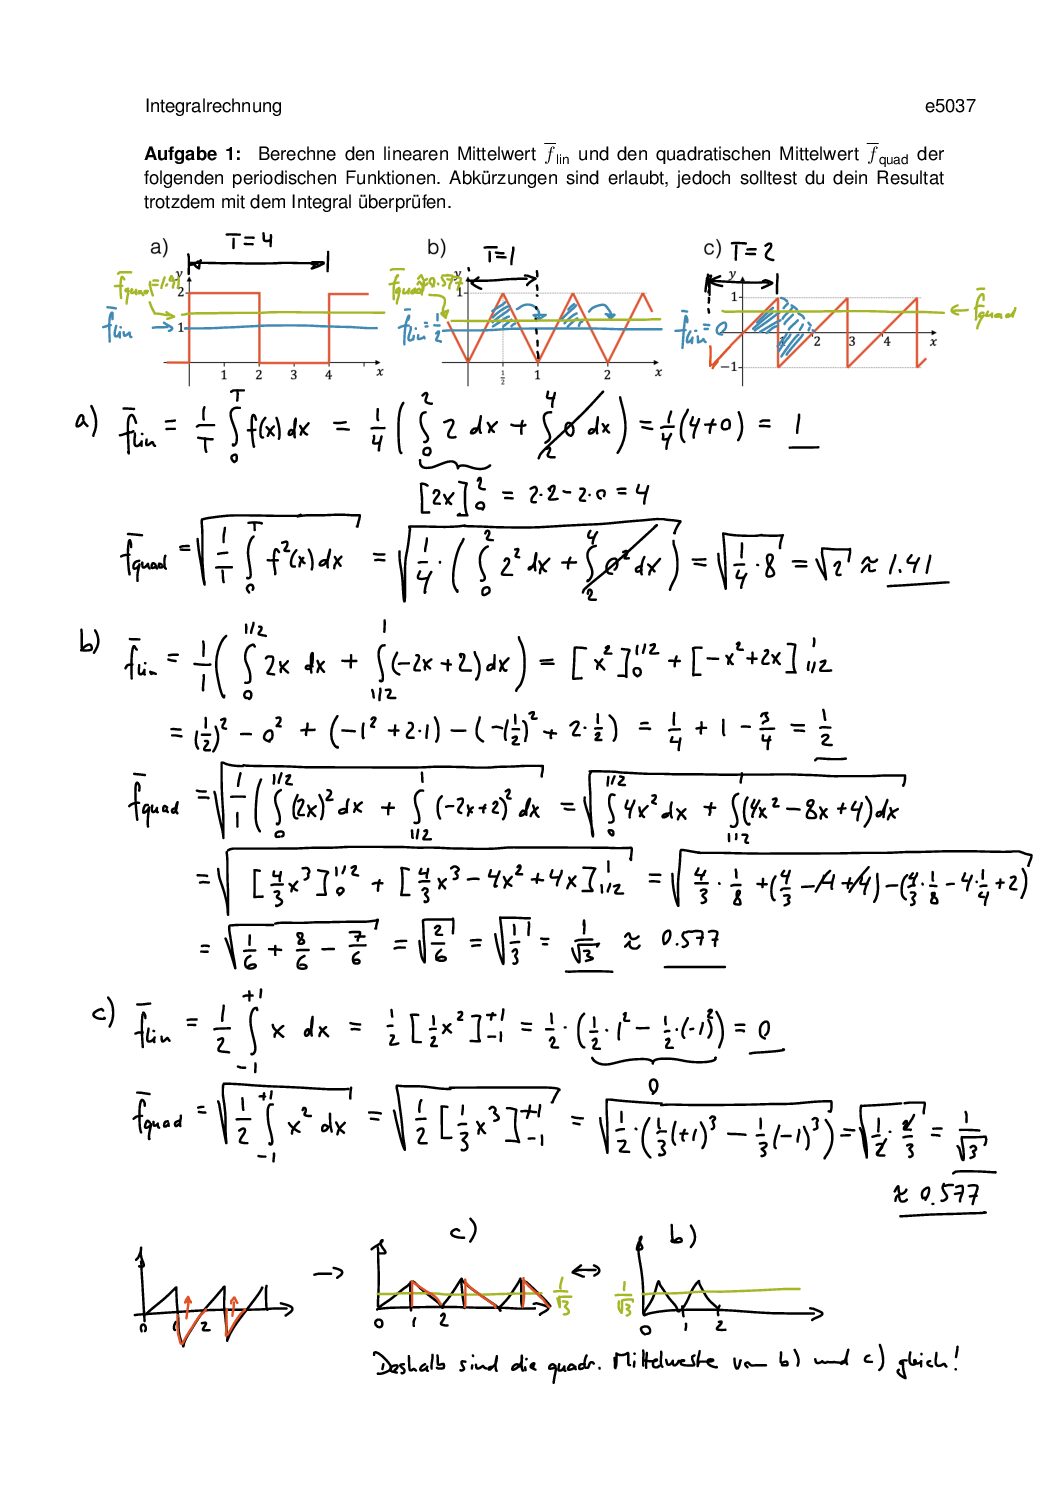 Integralrechnung e5037
Aufgabe 1: Berechne den linearen Mittelwert f̅_lin und den quadratischen Mittelwert f̅_quad der
folgenden periodischen Funktionen. Abkürzungen sind erlaubt, jedoch solltest du dein Resultat
trotzdem mit dem Integral überprüfen.
a) T=4 b) T=1 c) T=2
f̅_quad=1.41 y 2 f̅_lin 1 1 2 3 4 x
f̅_quad≈0.577 y 1 f̅_lin=1/2 1/2 1 2 x
f̅_lin=0 y 1 −1 1 2 3 4 x f̅_quad
a) f̅_lin = 1/T ∫_0^T f(x) dx = 1/4 (∫_0^2 2 dx + ∫_2^4 0 dx) = 1/4 (4+0) = 1
[2x]_0^2 = 2·2 − 2·0 = 4
f̅_quad = √(1/T ∫_0^T f²(x) dx) = √(1/4 · (∫_0^2 2² dx + ∫_2^4 0² dx)) = √(1/4 · 8) = √2 ≈ 1.41
b) f̅_lin = 1/1 (∫_0^{1/2} 2x dx + ∫_{1/2}^1 (−2x+2) dx) = [x²]_0^{1/2} + [−x²+2x]_{1/2}^1
= (1/2)² − 0² + (−1² + 2·1) − (−(1/2)² + 2·1/2) = 1/4 + 1 − 3/4 = 1/2
f̅_quad = √(1/1 (∫_0^{1/2} (2x)² dx + ∫_{1/2}^1 (−2x+2)² dx = √(∫_0^{1/2} 4x² dx + ∫_{1/2}^1 (4x² − 8x + 4) dx
= √([4/3 x³]_0^{1/2} + [4/3 x³ − 4x² + 4x]_{1/2}^1 = √(4/3 · 1/8 + (4/3 − 4 + 4) − (4/3 · 1/8 − 4·1/4 + 2)
= √(1/6 + 8/6 − 7/6) = √(2/6) = √(1/3) = 1/√3 ≈ 0.577
c) f̅_lin = 1/2 ∫_{−1}^{+1} x dx = 1/2 [1/2 x²]_{−1}^{+1} = 1/2 · (1/2 · 1² − 1/2 · (−1)²) = 0
0
f̅_quad = √(1/2 ∫_{−1}^{+1} x² dx) = √(1/2 [1/3 x³]_{−1}^{+1}) = √(1/2 · (1/3 (+1)³ − 1/3 (−1)³)) = √(1/2 · 2/3) = 1/√3
≈ 0.577
c) b)
0 1 2 → 0 1 2 1/√3 ↔ 1/√3 0 1 2
Deshalb sind die quadr. Mittelwerte von b) und c) gleich!